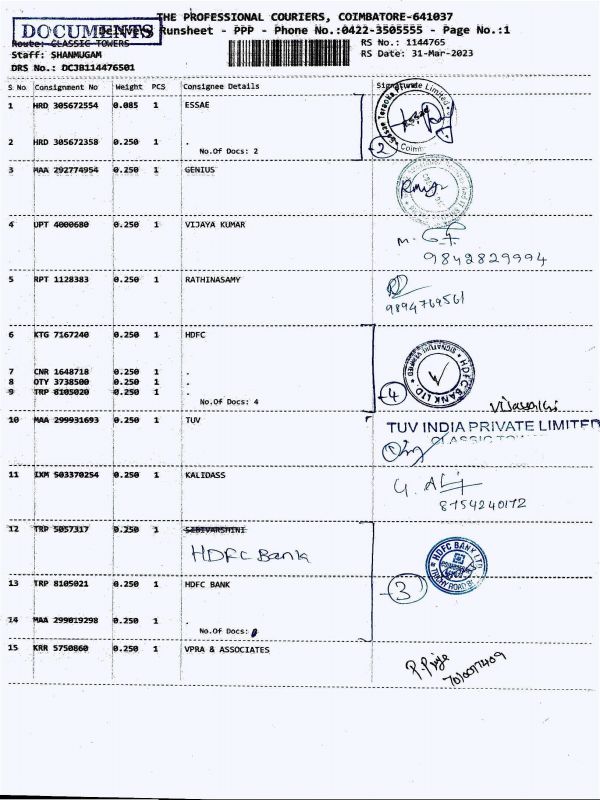 THE PROFESSIONAL COURIERS, COIMBATORE-641037
DOCUMENTS
Delivery Runsheet - PPP - Phone No.:0422-3505555 - Page No.:1
Route: CLASSIC TOWERS
RS No.: 1144765
Staff: SHANMUGAM
RS Date: 31-Mar-2023
DRS No.: DCJB114476501
S.No Consignment No Weight PCS Consignee Details
1 HRD 305672554 0.085 1 ESSAE
2 HRD 305672358 0.250 1 .
No.Of Docs: 2
2
3 MAA 292774954 0.250 1 GENIUS
4 UPT 4000680 0.250 1 VIJAYA KUMAR
9842829994
5 RPT 1128383 0.250 1 RATHINASAMY
9894769561
6 KTG 7167240 0.250 1 HDFC
HDFC BANK LTD
7 CNR 1648718 0.250 1 .
8 OTY 3738500 0.250 1 .
9 TRP 8105020 0.250 1 .
No.Of Docs: 4
4
10 MAA 299931693 0.250 1 TUV
TUV INDIA PRIVATE LIMITED
11 IXM 503370254 0.250 1 KALIDASS
8754240172
12 TRP 5057317 0.250 1 SIBIVARSHINI
HDFC Bank
HDFC BANK LTD
TRICHY ROAD
13 TRP 8105021 0.250 1 HDFC BANK
3
14 MAA 299019298 0.250 1 .
No.Of Docs:
15 KRR 5750860 0.250 1 VPRA & ASSOCIATES
P. Priya